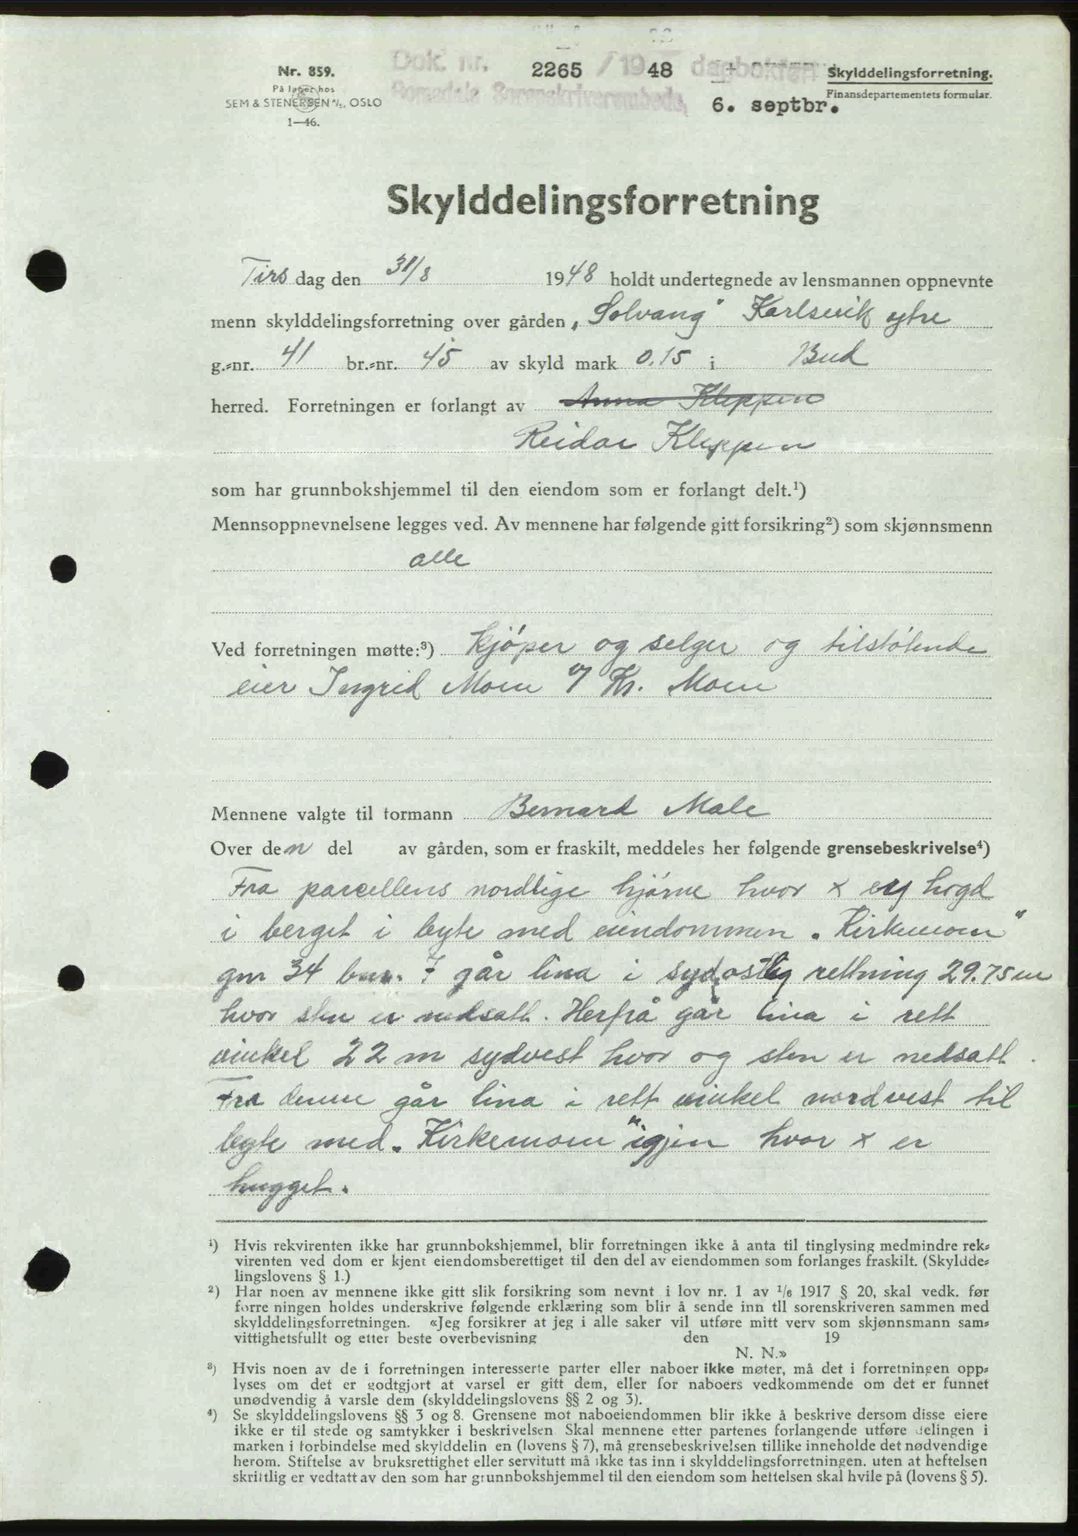 Nr. 859.
På lager hos
SEM & STENERSEN A/S, OSLO
1—46.
Dok. nr. 2265 / 1948 dagboken
Romsdals Sorenskriverembede,
6. septbr.
Skylddelingsforretning.
Finansdepartementets formular.
Skylddelingsforretning
Tirsdag den 31/8 1948 holdt undertegnede av lensmannen oppnevnte
menn skylddelingsforretning over gården „Solvang" Karlsvik ytre
g.-nr. 41 br.-nr. 45 av skyld mark 0.15 i Bud
herred. Forretningen er forlangt av Anna Kleppen
Reidar Kleppen
som har grunnbokshjemmel til den eiendom som er forlangt delt.¹)
Mennsoppnevnelsene legges ved. Av mennene har følgende gitt forsikring²) som skjønnsmenn
alle
Ved forretningen møtte:³) Kjøper og selger og tilstøtende
eier Ingrid Moen v/ Kr. Moen
Mennene valgte til formann Bernard Male
Over den del av gården, som er fraskilt, meddeles her følgende grensebeskrivelse⁴)
Fra parcellens nordlige hjørne hvor x er hogd
i berget i byte med eiendommen „Kirkemoen"
gnr 34 bnr. 7 går lina i sydostlig rettning 29.75 m
hvor sten er nedsatt. Herfrå går lina i rett
vinkel 22 m sydvest hvor og sten er nedsatt.
Fra denne går lina i rett vinkel nordvest til
byte med „Kirkemoen" igjen hvor x er
hugget.
¹) Hvis rekvirenten ikke har grunnbokshjemmel, blir forretningen ikke å anta til tinglysing medmindre rek-
virenten ved dom er kjent eiendomsberettiget til den del av eiendommen som forlanges fraskilt. (Skyldde-
lingslovens § 1.)
²) Har noen av mennene ikke gitt slik forsikring som nevnt i lov nr. 1 av 1/6 1917 § 20, skal vedk. før
forre ningen holdes underskrive følgende erklæring som blir å sende inn til sorenskriveren sammen med
skylddelingsforretningen. «Jeg forsikrer at jeg i alle saker vil utføre mitt verv som skjønnsmann sam-
vittighetsfullt og etter beste overbevisning den 19
N. N.»
³) Hvis noen av de i forretningen interesserte parter eller naboer ikke møter, må det i forretningen opp-
lyses om det er godtgjort at varsel er gitt dem, eller for naboers vedkommende om det er funnet
unødvendig å varsle dem (skylddelingslovens §§ 2 og 3).
⁴) Se skylddelingslovens §§ 3 og 8. Grensene mot naboeiendommen blir ikke å beskrive dersom disse eiere
ikke er til stede og samtykker i beskrivelsen. Skal mennene etter partenes forlangende utføre delingen i
marken i forbindelse med skylddelin en (lovens § 7), må grensebeskrivelsen tillike inneholde det nødvendige
herom. Stiftelse av bruksrettighet eller servitutt må ikke tas inn i skylddelingsforretningen. uten at heftelsen
skriftlig er vedtatt av den som har grunnbokshjemmel til den eiendom som heftelsen skal hvile på (lovens § 5).